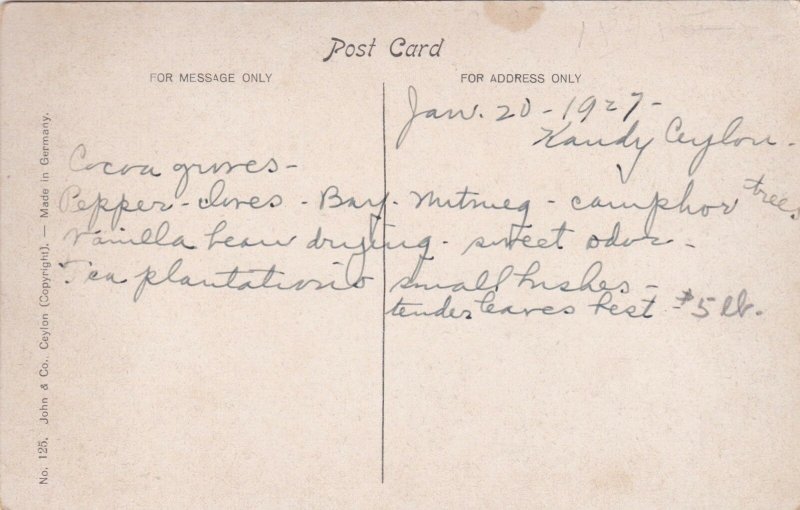 Post Card
FOR MESSAGE ONLY
FOR ADDRESS ONLY
Jan. 20 - 1927 -
Kandy Ceylon -
Cocoa groves -
Pepper - cloves - Bay - Nutmeg - camphor trees
Vanilla bean drying - sweet odor -
Tea plantations small bushes -
tender leaves best $5 lb.
No. 125. John & Co., Ceylon (Copyright). — Made in Germany.